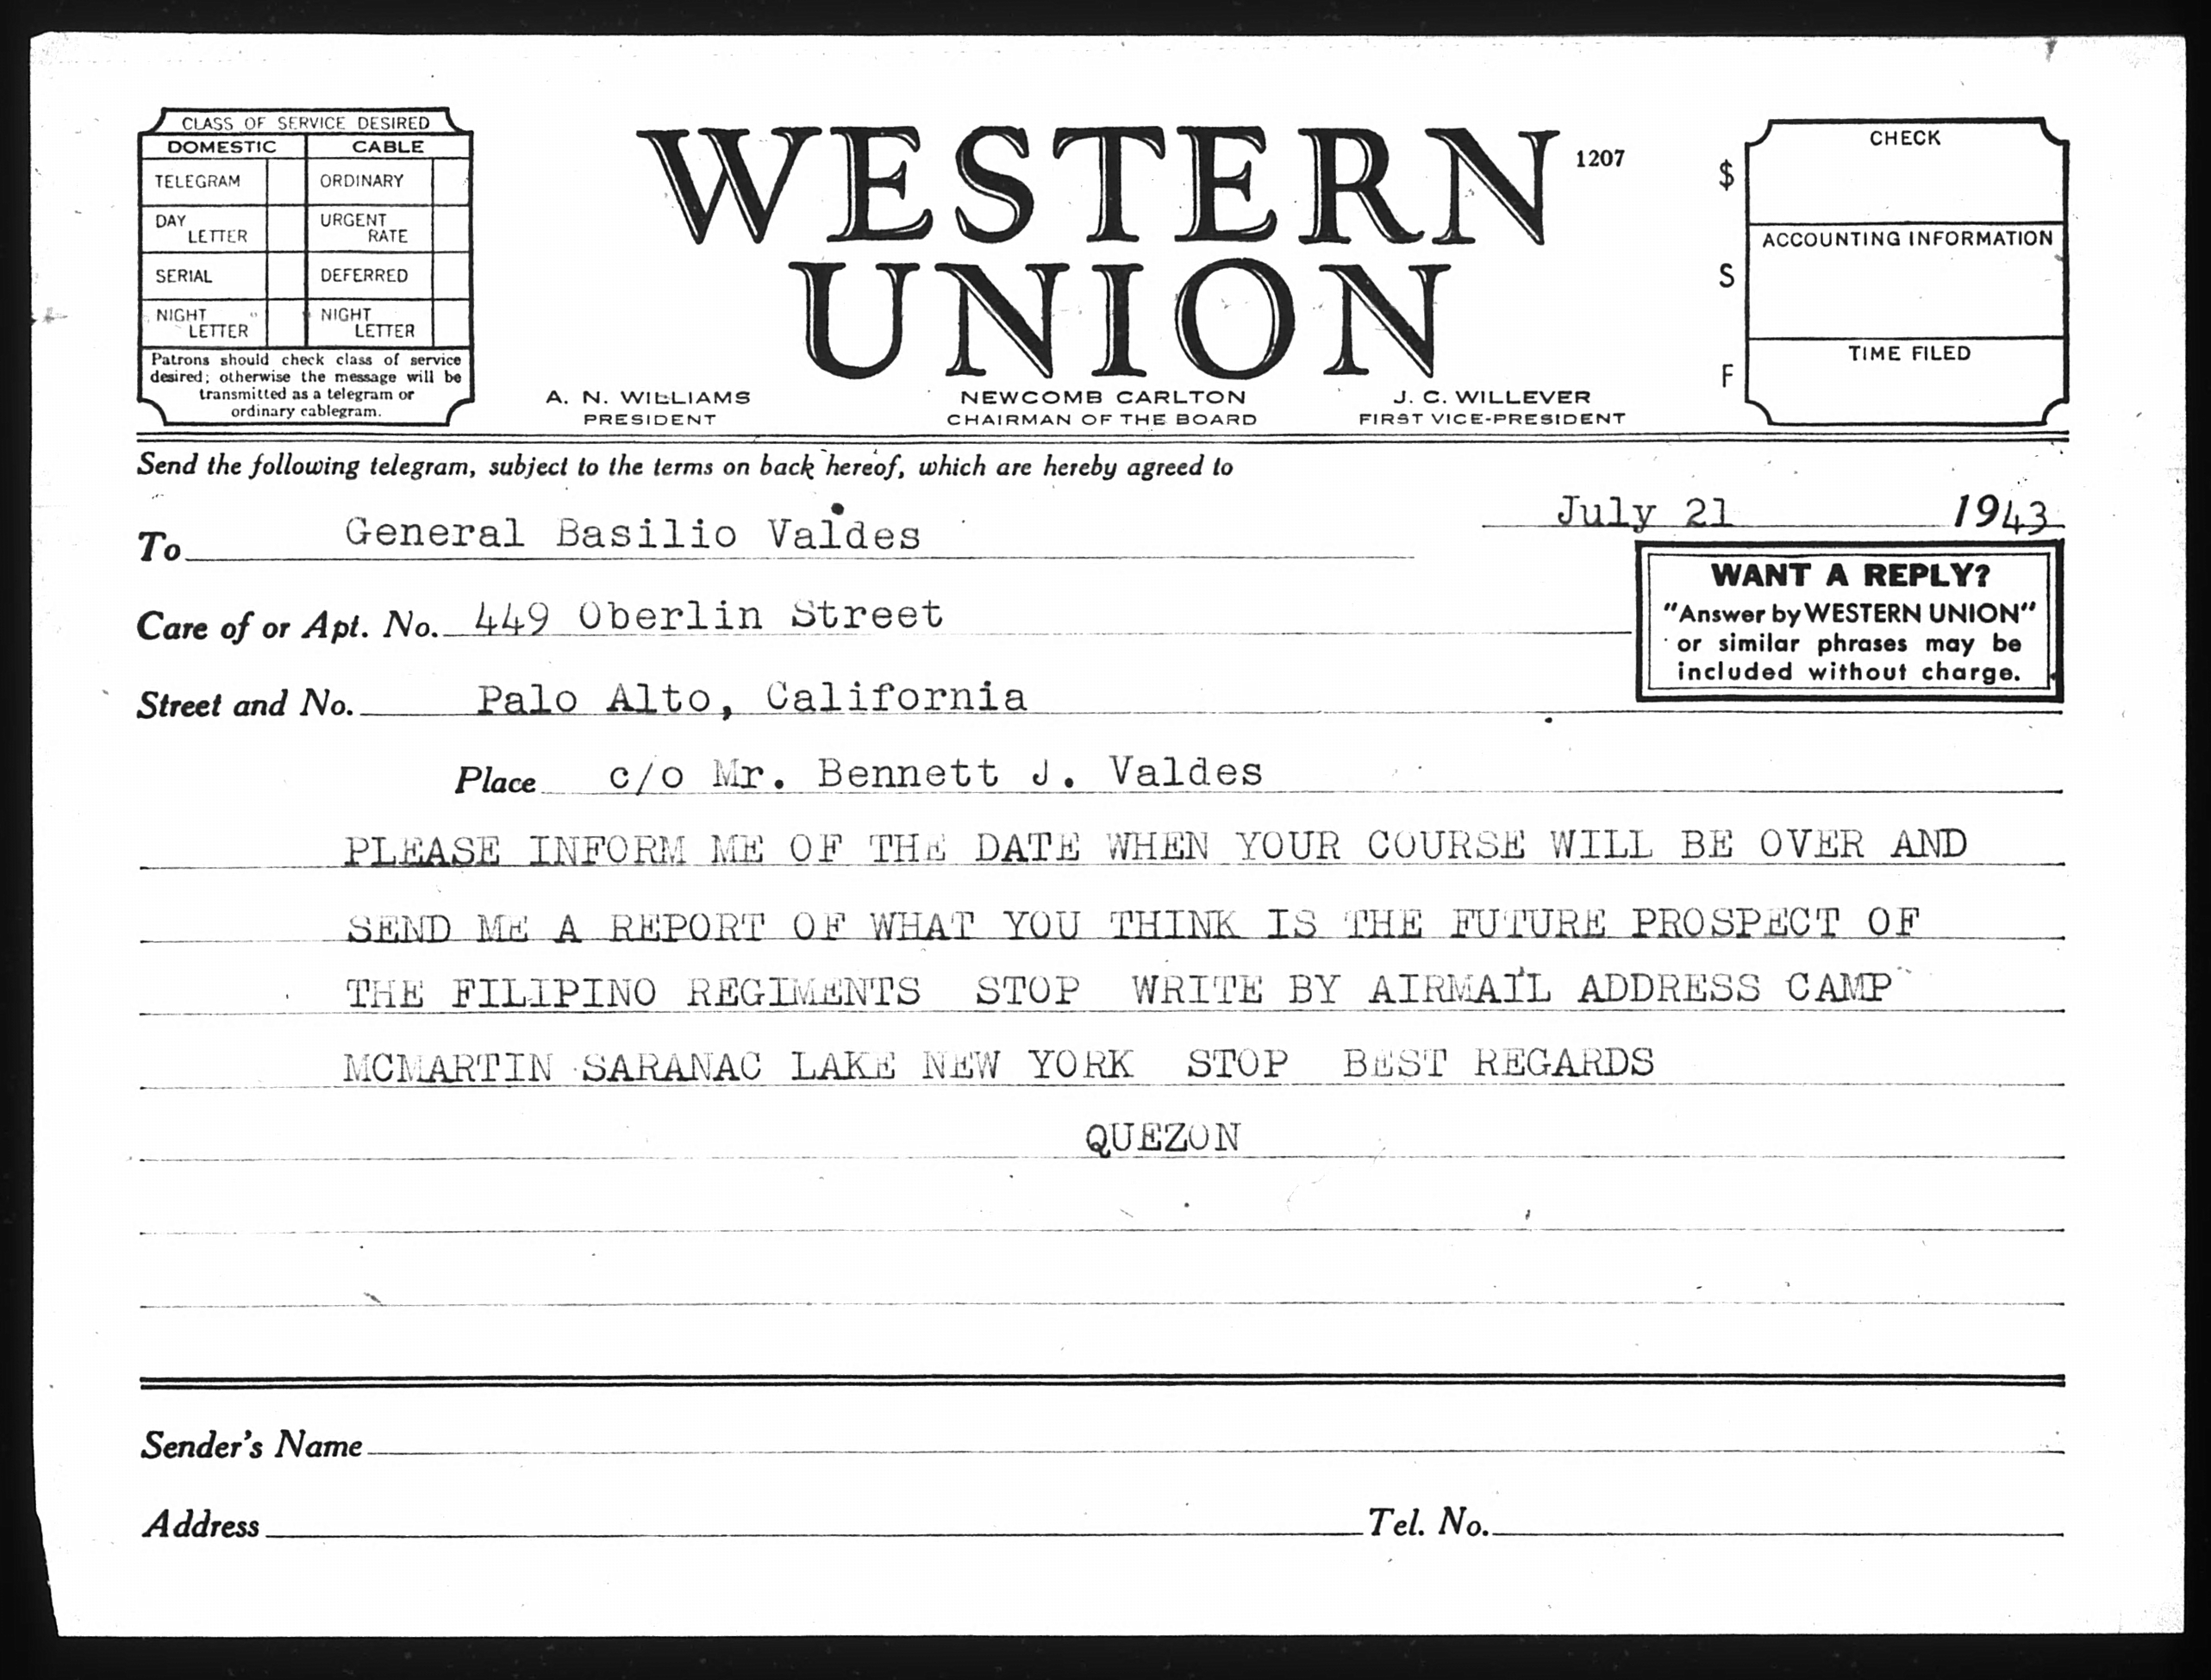 CLASS OF SERVICE DESIRED
DOMESTIC CABLE
TELEGRAM ORDINARY
DAY LETTER URGENT RATE
SERIAL DEFERRED
NIGHT LETTER NIGHT LETTER
Patrons should check class of service
desired; otherwise the message will be
transmitted as a telegram or
ordinary cablegram.
WESTERN
UNION
1207
A. N. WILLIAMS
PRESIDENT
NEWCOMB CARLTON
CHAIRMAN OF THE BOARD
J. C. WILLEVER
FIRST VICE-PRESIDENT
$
S
F
CHECK
ACCOUNTING INFORMATION
TIME FILED
Send the following telegram, subject to the terms on back hereof, which are hereby agreed to
July 21 1943
To General Basilio Valdes
Care of or Apt. No. 449 Oberlin Street
Street and No. Palo Alto, California
Place c/o Mr. Bennett J. Valdes
WANT A REPLY?
"Answer by WESTERN UNION"
or similar phrases may be
included without charge.
PLEASE INFORM ME OF THE DATE WHEN YOUR COURSE WILL BE OVER AND
SEND ME A REPORT OF WHAT YOU THINK IS THE FUTURE PROSPECT OF
THE FILIPINO REGIMENTS STOP WRITE BY AIRMAIL ADDRESS CAMP
MCMARTIN SARANAC LAKE NEW YORK STOP BEST REGARDS
QUEZON
Sender's Name
Address Tel. No.